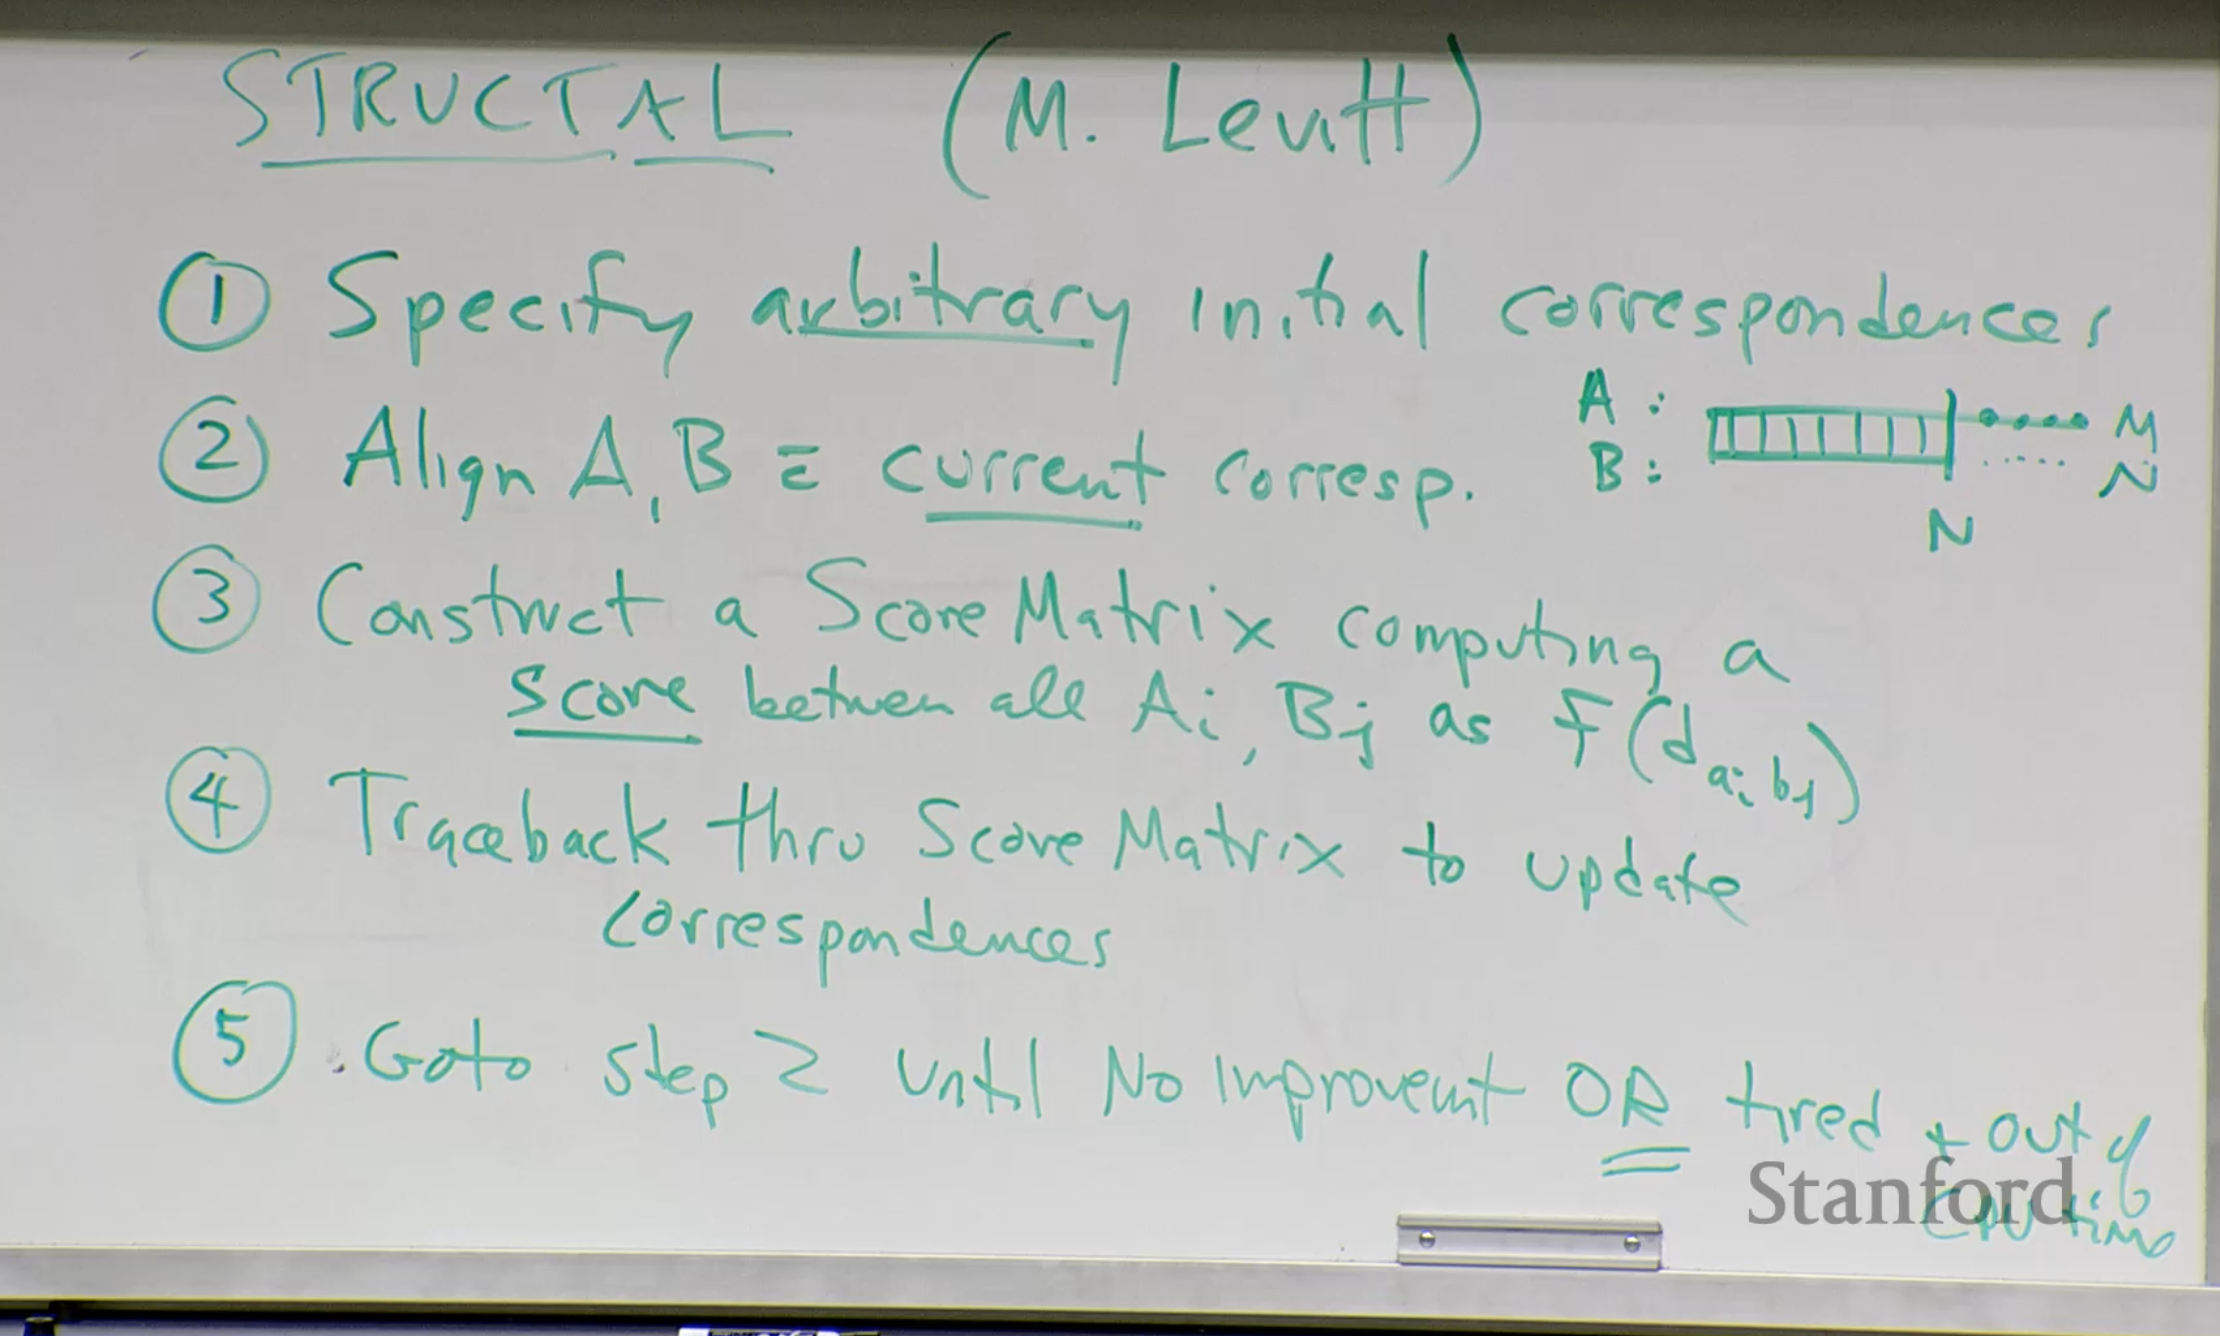 STRUCTAL (M. Levitt)
① Specify arbitrary initial correspondences
A:
M
② Align A, B c̄ current corresp.
B:
N
N
③ Construct a Score Matrix computing a
score between all Ai, Bj as F(d ai bj)
④ Traceback thru Score Matrix to update
correspondences
⑤ Goto step 2 until No improvement OR tired + out of
CPU time
Stanford